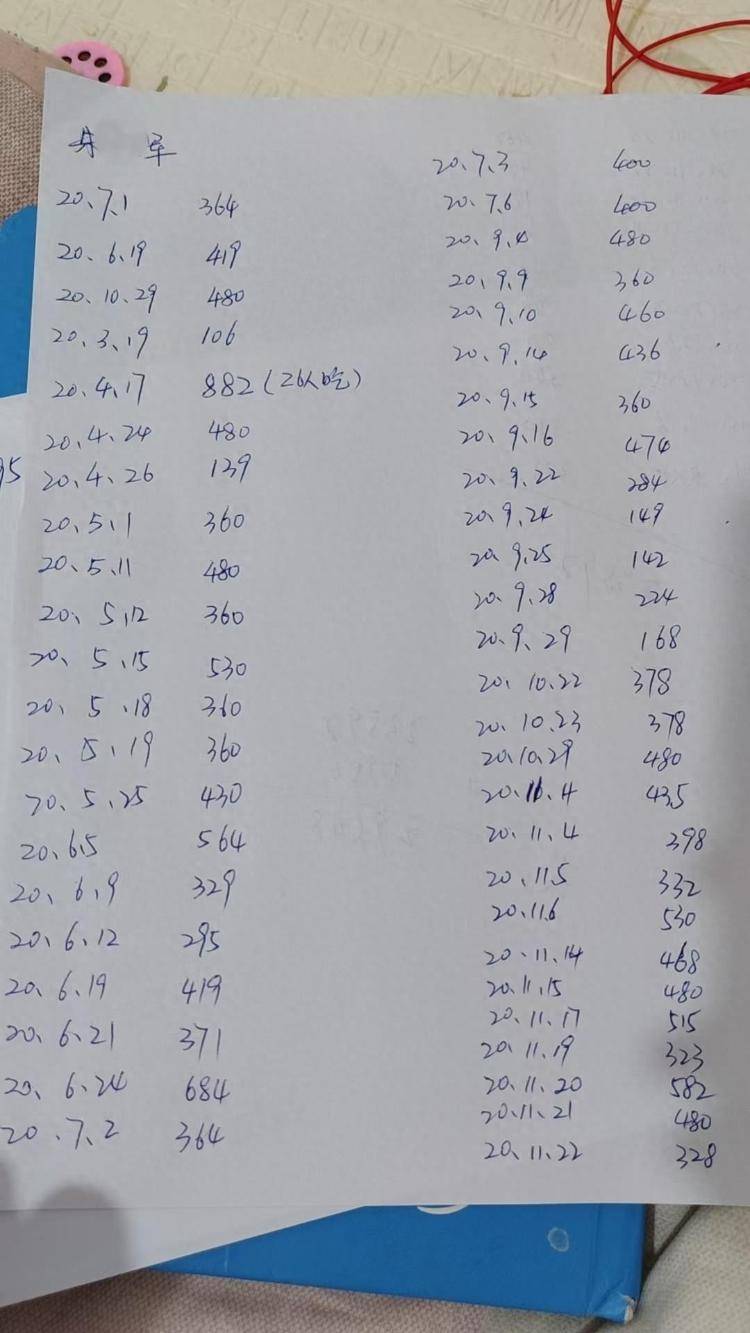 舟 军
20.7.1 364
20.6.19 419
20.10.29 480
20.3.19 106
20.4.17 882(26人吃)
20.4.24 480
20.4.26 139
20.5.1 360
20.5.11 480
20.5.12 360
20.5.15 530
20.5.18 360
20.5.19 360
20.5.25 430
20.6.5 564
20.6.9 329
20.6.12 295
20.6.19 419
20.6.21 371
20.6.24 684
20.7.2 364
20.7.3 400
20.7.6 400
20.9.4 480
20.9.9 360
20.9.10 460
20.9.14 436
20.9.15 360
20.9.16 474
20.9.22 284
20.9.24 149
20.9.25 142
20.9.28 224
20.9.29 168
20.10.22 378
20.10.23 378
20.10.29 480
20.11.4 435
20.11.4 398
20.11.5 332
20.11.6 530
20.11.14 468
20.11.15 480
20.11.17 515
20.11.19 323
20.11.20 582
20.11.21 480
20.11.22 328
95